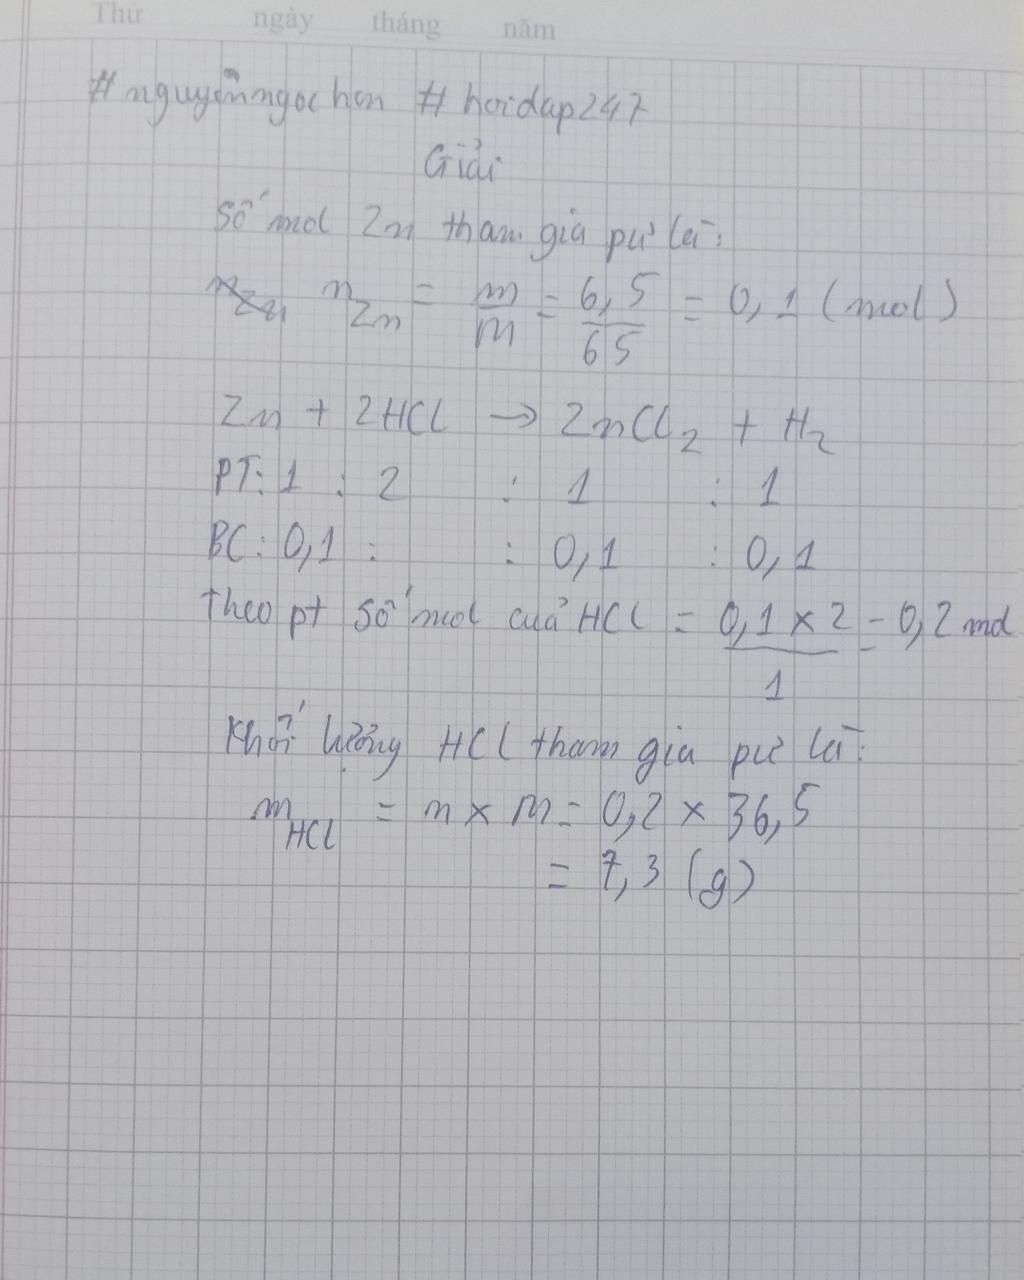 Thứ ngày tháng năm
#nguyễnngochan #hoidap247
Giải
Số mol Zn tham gia pư là:
nZn nZn = m/M = 6,5/65 = 0,1 (mol)
Zn + 2HCl → ZnCl2 + H2
PT: 1 : 2 : 1 : 1
BC: 0,1 : : 0,1 : 0,1
Theo pt số mol của HCl = 0,1 x 2/1 = 0,2 mol
Khối lượng HCl tham gia pư là:
mHCl = n x M = 0,2 x 36,5
= 7,3 (g)